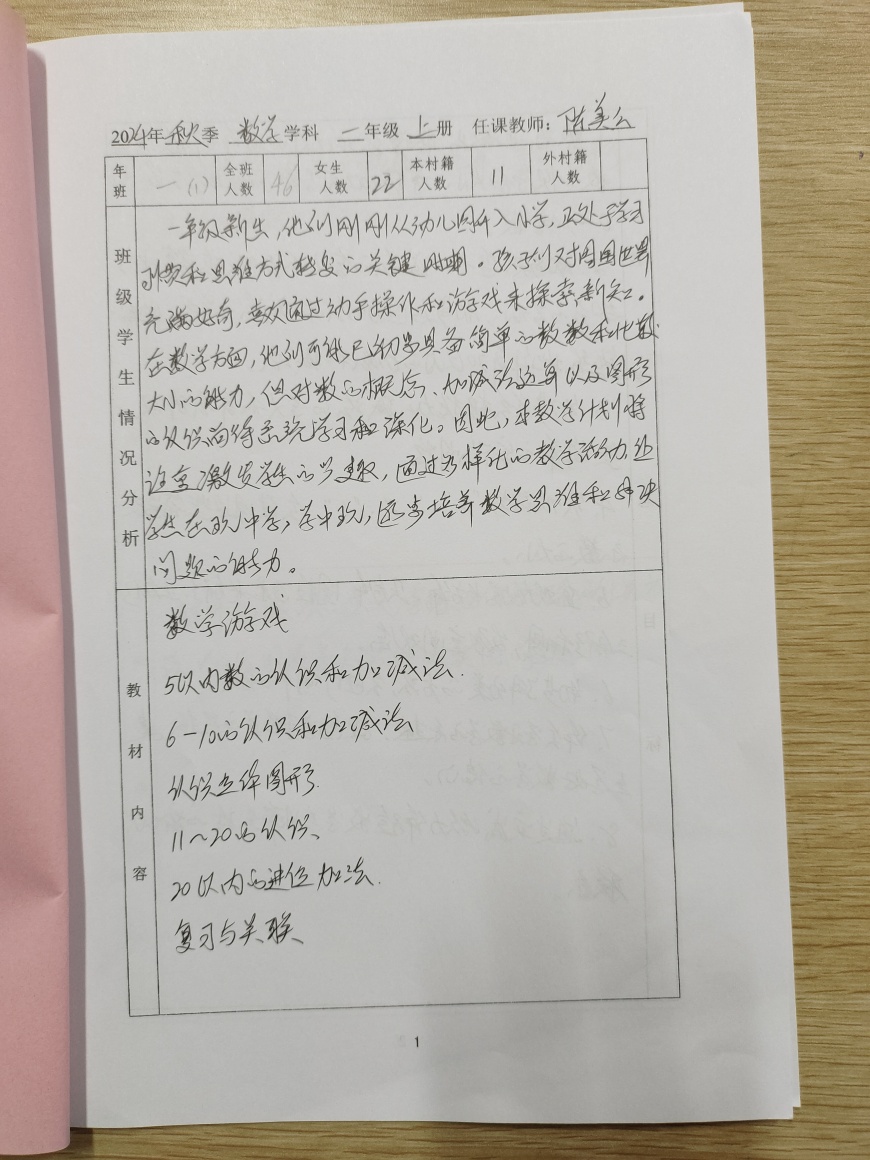 2024年秋季 数学学科 一年级上册 任课教师：陈美
年班 一(1) 全班人数 46 女生人数 22 本村籍人数 11 外村籍人数
班级学生情况分析
一年级新生，他们刚刚从幼儿园升入小学，正处于学习
习惯和思维方式转变的关键时期。孩子们对周围世界
充满好奇，喜欢通过动手操作和游戏来探索新知。
在数学方面，他们可能已初步具备简单的数数和比较
大小的能力，但对数的概念、加减法运算以及图形
的认识尚待系统学习和深化。因此，本教学计划将
注重激发学生的兴趣，通过多样化的教学活动，让
学生在玩中学，学中玩，逐步培养数学思维和解决
问题的能力。
教材内容
数学游戏
5以内数的认识和加减法.
6-10的认识和加减法
认识立体图形.
11~20的认识、
20以内的进位加法.
复习与关联、
1